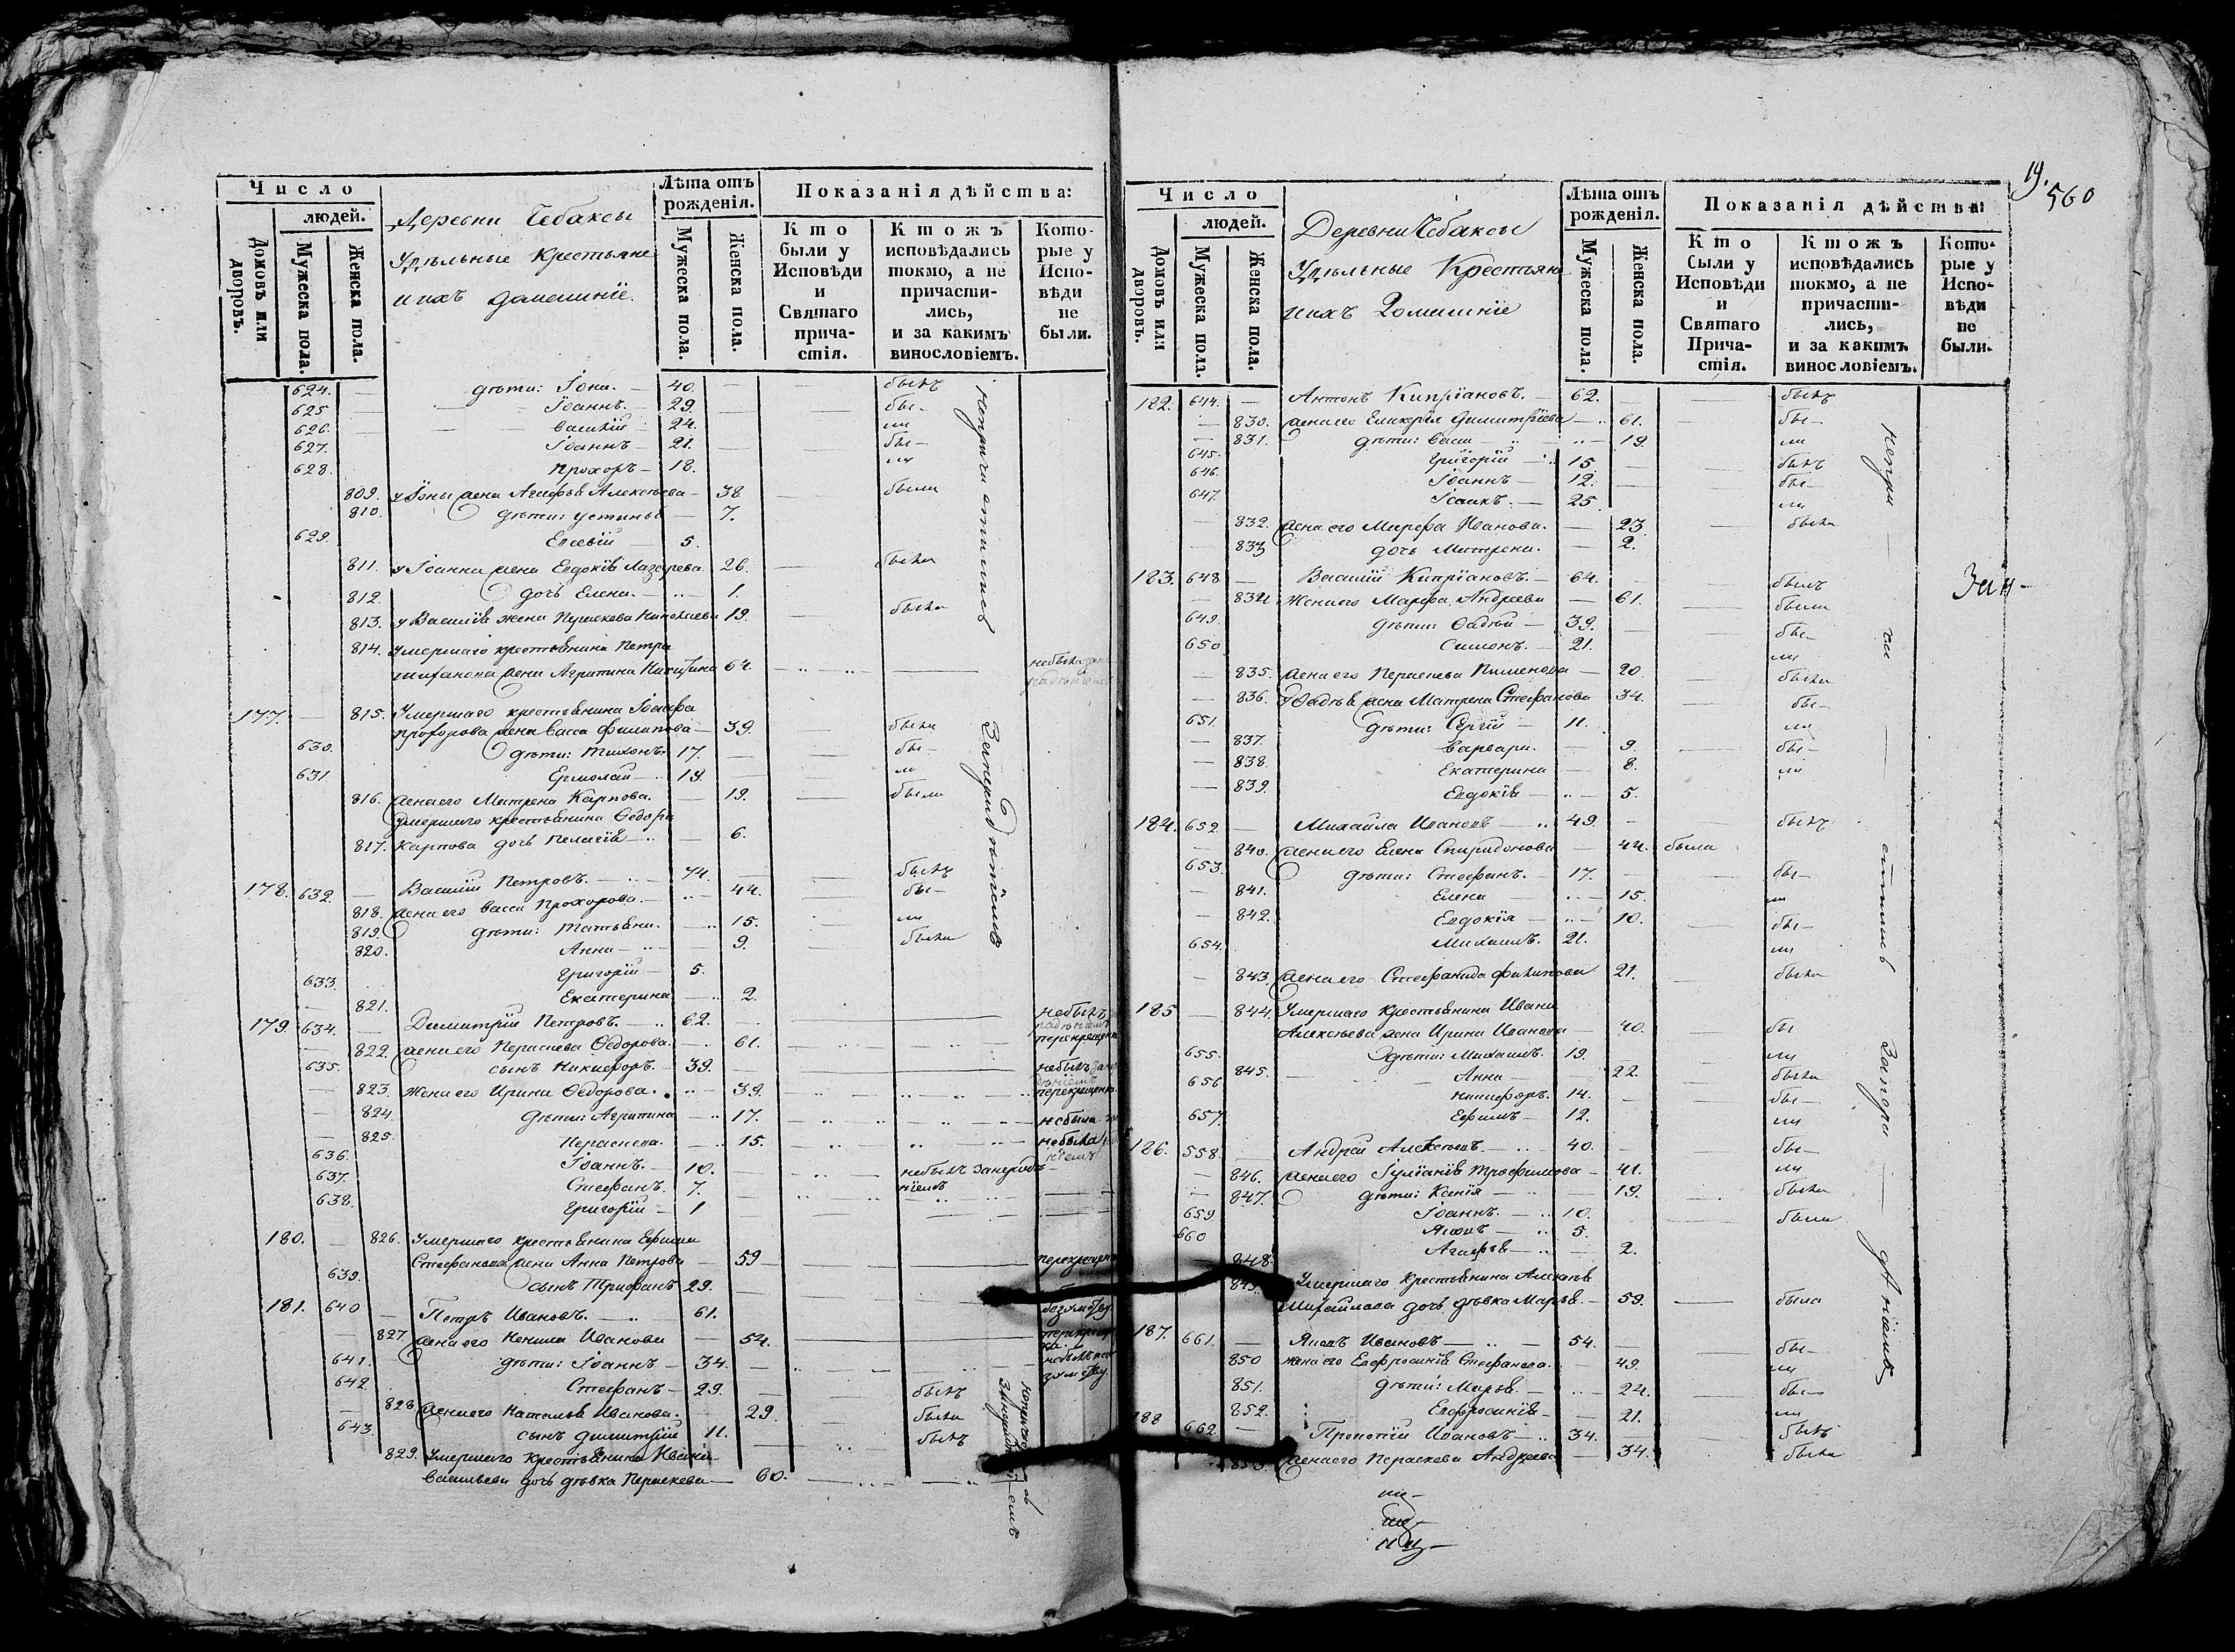 Число
людей.
Домовъ или дворовъ.
Мужеска пола.
Женска пола.
Деревни Чебаксы
Удѣльные Крестьяне
и ихъ домашнїе.
Лѣта отъ рожденія.
Мужеска пола.
Женска пола.
Показанія дѣйства:
Кто были у Исповѣди и Святаго причастія.
Ктожъ исповѣдались токмо, а не причастились, и за какимъ винословіемъ.
Которые у Исповѣди не были.
624. — дѣти: Іона. — 40. — — былъ
625 — Іоаннъ. — 29. — бы-
626. — Василій — 24. ли
627. Іоаннъ — 21. — бы-
628. Прохоръ — 18. ли
809. у Іоны жена Агафья Алексѣева — 38. были
810. дѣти: Устинья — 7.
629. Евсевій 5.
811. у Іоанна жена Евдокія Лазарева. 26. — была
812. дочь Елена. — 1.
813. у Василія жена Параскева 19. была
814. Умершаго крестьянина Петра
жена Агрипина Никитина 64. — небыла
177. — 815. Умершаго крестьянина Іосифа
жена Васса Филипова — 39. была
630. дѣти: Тихонъ. 17. — бы-
631. Ермолай — 19. — ли
816. жена его Матрена Карпова. — 19. — были
умершаго крестьянина Ѳедора
817. Карпова дочь Пелагія — 6.
178. 632. — Василій Петровъ. — 44. — былъ
818. жена его Васса Прохорова. — 44. — бы-
819. дѣти: Татьяна. — 15. ли
820. Анна — 9. — была
633. Григорій — 5.
821. Екатерина — 2.
179. 634. — Димитрій Петровъ. — 62. — небылъ
822. жена его Параскева Ѳедорова. — 61.
635. сынъ Никифоръ. — 39. — небылъ
823. Жена его Ирина Ѳедорова. 39.
824. дѣти: Агрипина — 17. — небыла
825. Параскева. — 15. — небыла
636. Іоаннъ. — 10. — небылъ
637. Стефанъ. 7.
638. Григорій — 1
180. — 826. Умершаго крестьянина Ефима
Стефанова жена Анна Петрова — 59
639. сынъ Трифанъ 29.
181. 640 — Петръ Ивановъ. — 61.
827. жена его Ненила Иванова — 54.
641. дѣти: Іоаннъ — 34.
642. Стефанъ — 29. — былъ
828. жена его Наталья Иванова. 29. — была
643. сынъ Димитрій 11. — былъ
829. Умершаго крестьянина Ивана
Васильева дочь дѣвка Параскева — 60.
19. 560
Число
людей.
Домовъ или дворовъ.
Мужеска пола.
Женска пола.
Деревни Чебаксы
Удѣльные Крестьяне
и ихъ Домашнїе
Лѣта отъ рожденія.
Мужеска пола.
Женска пола.
Показанія дѣйства:
Кто были у Исповѣди и Святаго Причастія.
Ктожъ исповѣдались токмо, а не причастились, и за какимъ винословіемъ.
Которые у Исповѣди не были.
182. 644. — Антонъ Кипріановъ. — 62. — былъ
830. жена его Димитріева — 61. — бы-
831. дѣти: — 19. — ли
645. Григорій — 15. — былъ
646. Іоаннъ — 12. — бы-
647. Исаакъ. — 25. ли
832. жена его Марфа Иванова. — 23. — была
833 дочь Матрена. — 2.
183. 648. — Василій Кипріановъ. — 64. — былъ
834 Жена его Марфа Андреева — 61. — была
649. дѣти: Фадѣй — 39. — бы-
650 Симонъ. — 21. ли
835. жена его Параскева Пименова — 20. — была
836. у Фадѣя жена Матрена Стефанова 34. — бы-
651. дѣти: Сергій — 11. ли
837. Варвара. — 9. — бы-
838. Екатерина — 8. ли
839. Евдокія — 5.
184. 652. — Михаила Ивановъ — 49. — былъ
840. жена его Елена Спиридонова — 44. была
653. дѣти: Стефанъ. — 17. — бы-
841. Елена — 15. ли
842. Евдокія — 10. бы-
654. Михаилъ. 21. ли
843. жена его Стефанида Филипова 21. — была
185 — 844. Умершаго Крестьянина Ивана
Алексѣева жена Ирина Иванова — 40. бы
655. дѣти: Михаилъ. 19. ли
845. Анна — 22. была
656 Никифоръ. 14. — бы-
657. Ефимъ — 12. ли
186. 558. Андрей Алексѣевъ. — 40. — бы-
846. жена его Іуліанія Трофимова — 41. ли
847. дѣти: Ксенія — 19. — была
659 Іоаннъ. — 10. была
660 Яковъ — 5.
848. Агафья — 2.
849. Умершаго Крестьянина Алексѣя
Михайлова дочь дѣвка Марья. — 59. — была
187. 661. — Яковъ Ивановъ — 54. — бы-
850 жена его Евфросинія Стефанова. — 49. ли
851. дѣти: Марья. — 24. бы-
852. Евфросинія — 21. ли
188 662. — Прокопій Ивановъ — 34. — былъ
853. жена его Параскева Андреева — 34. — была